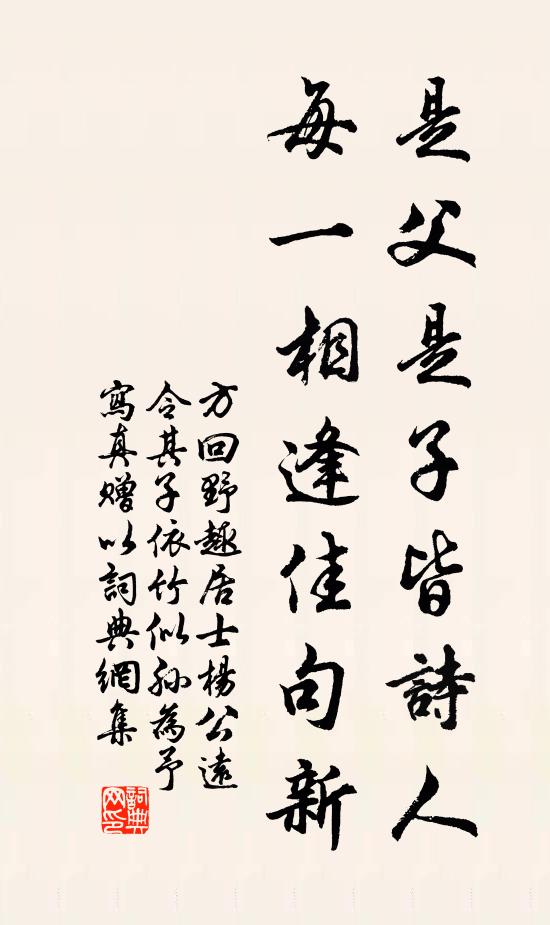 是父是子皆詩人
每一相逢佳句新
方回野趣居士楊公遠
令其子依竹似孫為予
寫真贈以詞典網集
詞典网印